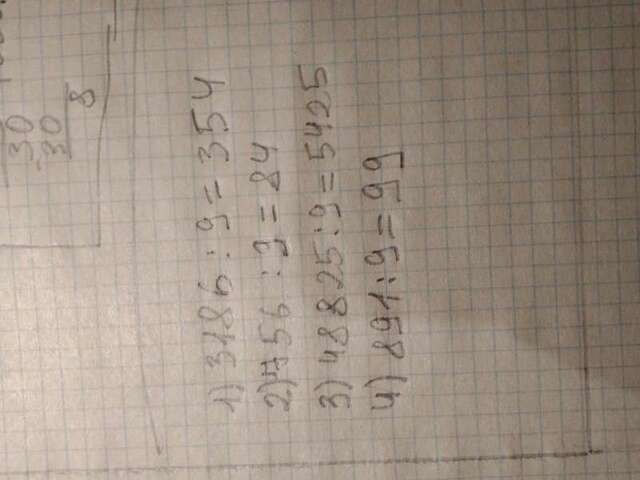 30
30
8
1) 3186 : 9 = 354
2) 756 : 9 = 84
3) 48825 : 9 = 5425
4) 891 : 9 = 99